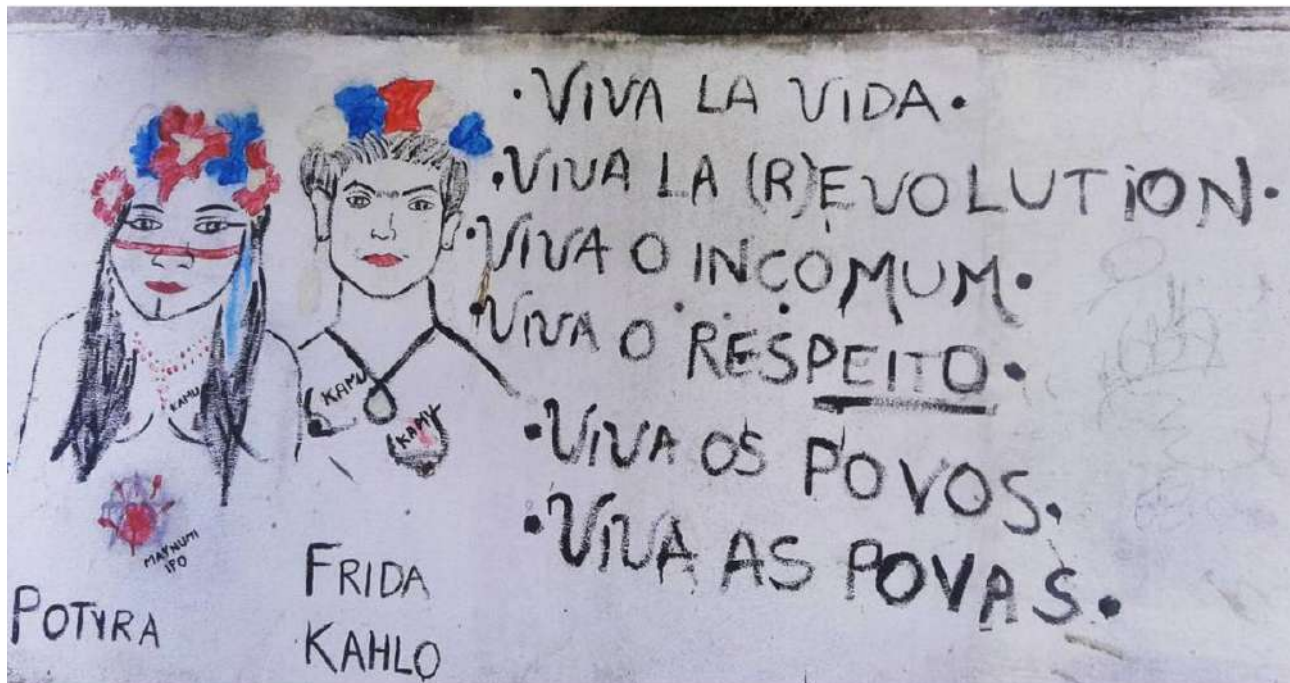 • VIVA LA VIDA •
• VIVA LA (R)EVOLUTION •
• VIVA O INCOMUM •
• VIVA O RESPEITO •
• VIVA OS POVOS •
• VIVA AS POVAS •
KAMU
KAMU
KAMY
MAYNUMI
IPO
POTYRA
FRIDA
KAHLO